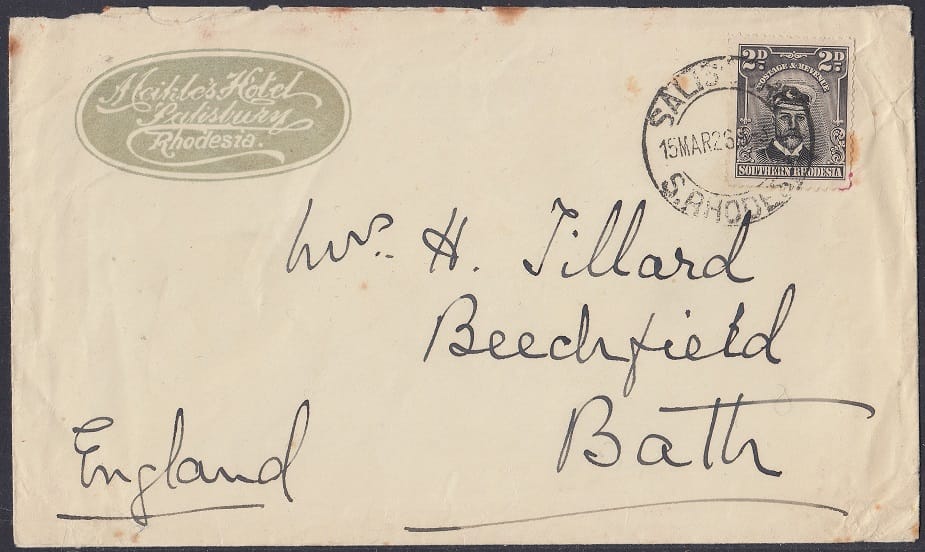 Meikle's Hotel
Salisbury
Rhodesia.
2D 2D
POSTAGE & REVENUE
SOUTHERN RHODESIA
15 MAR 26
S. RHODES
Mrs. H. Tillard
Beechfield
Bath
England